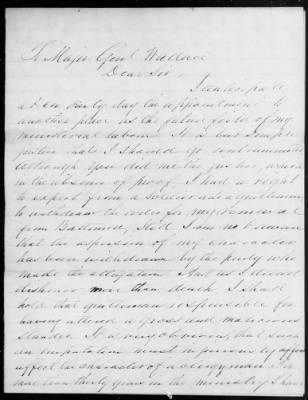 To Major Genl Wallace
Dear Sir,
I anticipate
at an early day the appointment to
another place as the future field of my
ministerial labors. It is but simple
justice that I should go
Although you did me the justice, which
in the absence of proof, I had a right
to expect from a Soldier and a gentleman
to withdraw the order for my removal
from Baltimore, Still, I am not aware
that the aspersion of my character
has been withdrawn by the party who
made the allegation. And as I dread
dishonor more than death I shall
hold that gentleman responsible for
having uttered a gross and malicious
slander. It is very obvious, that such
an imputation must injuriously
affect the character of a clergyman.
more than thirty years in the ministry I have